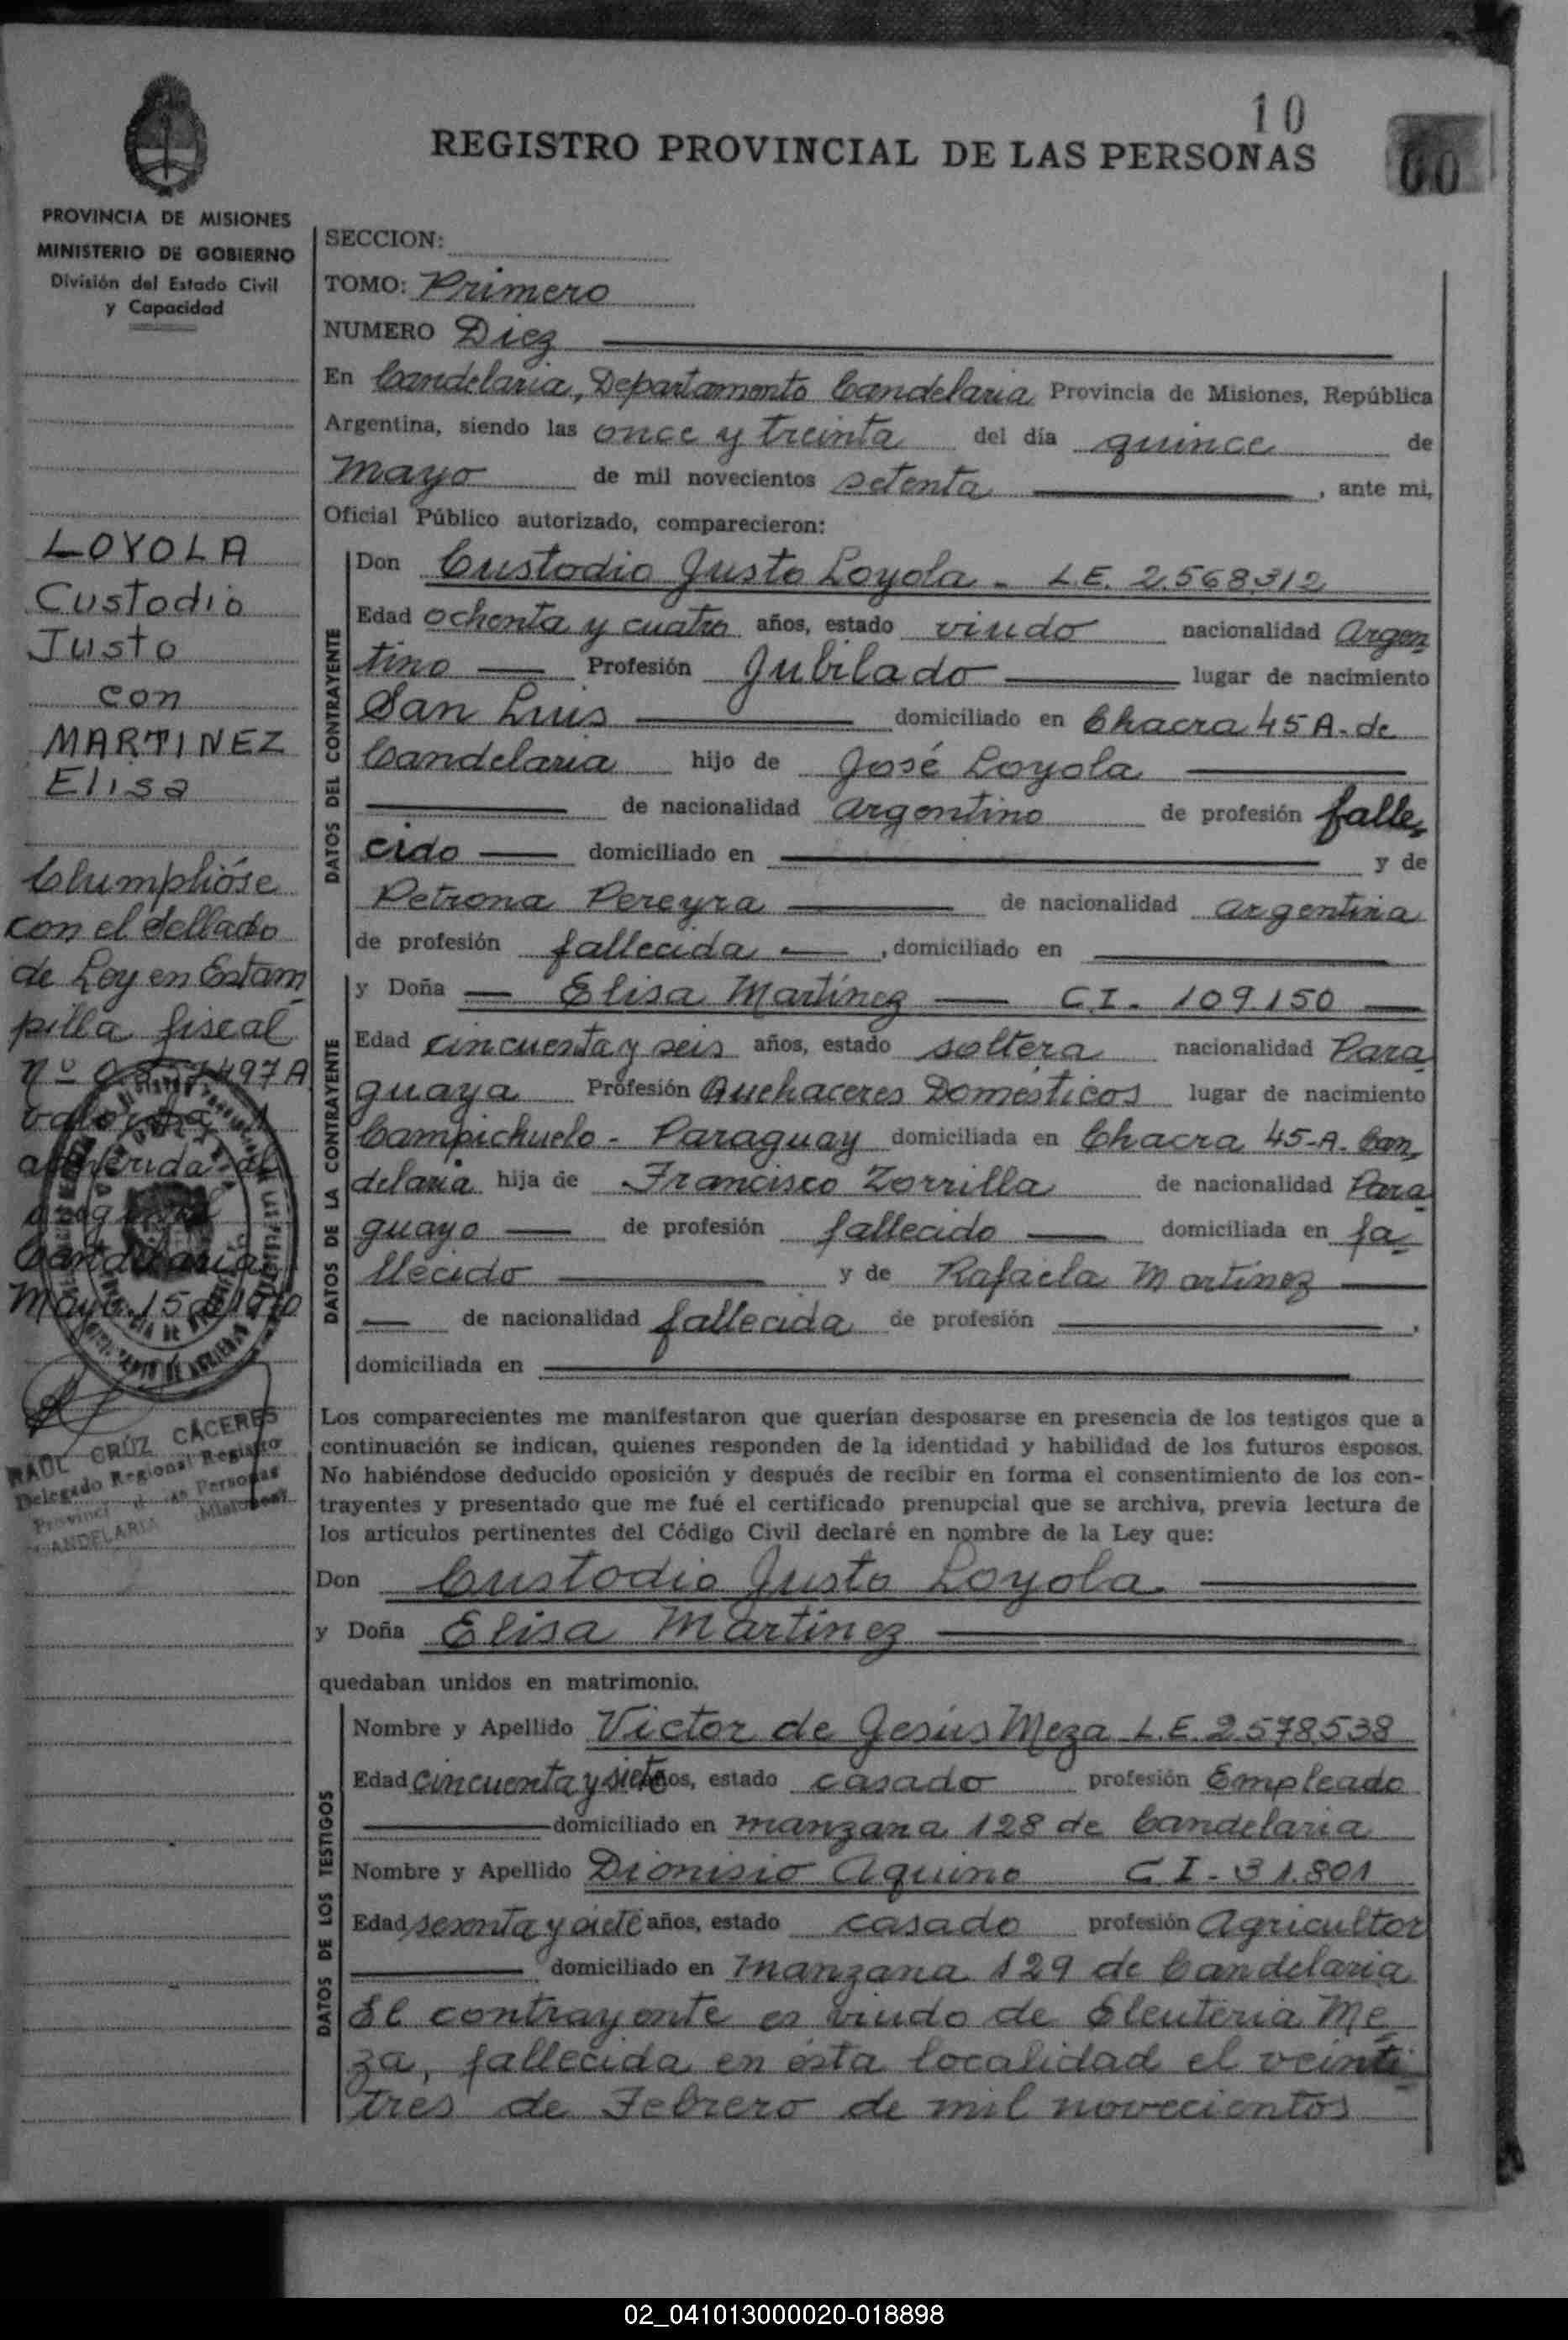 10
REGISTRO PROVINCIAL DE LAS PERSONAS
60
PROVINCIA DE MISIONES
MINISTERIO DE GOBIERNO
División del Estado Civil
y Capacidad
LOYOLA
Custodio
Justo
con
MARTINEZ
Elisa
Chumplióse
con el Sellado
de Ley en Estam
pilla fiscal
valor
Candelaria
Mayo 15 de 1970
RAUL CRUZ CÁCERES
Delegado Regional Registro
Personas
CANDELARIA Misiones
SECCION:
TOMO: Primero
NUMERO Diez
En Candelaria, Departamento Candelaria Provincia de Misiones, República
Argentina, siendo las once y treinta del día quince de
Mayo de mil novecientos setenta, ante mi,
Oficial Público autorizado, comparecieron:
DATOS DEL CONTRAYENTE
Don Custodio Justo Loyola - L.E. 2.568.312
Edad ochenta y cuatro años, estado viudo nacionalidad Argen
tino Profesión Jubilado lugar de nacimiento
San Luis domiciliado en Chacra 45 A. de
Candelaria hijo de José Loyola
de nacionalidad argentino de profesión falle
cido domiciliado en y de
Petrona Pereyra de nacionalidad argentina
de profesión fallecida, domiciliado en
DATOS DE LA CONTRAYENTE
y Doña Elisa Martínez C.I. 109.150
Edad cincuenta y seis años, estado soltera nacionalidad Para
guaya Profesión Quehaceres Domésticos lugar de nacimiento
Campichuelo - Paraguay domiciliada en Chacra 45-A. Can
delaria hija de Francisco Zorrilla de nacionalidad Para
guayo de profesión fallecido domiciliada en fa
llecido y de Rafaela Martínez
de nacionalidad fallecida de profesión ,
domiciliada en
Los comparecientes me manifestaron que querían desposarse en presencia de los testigos que a
continuación se indican, quienes responden de la identidad y habilidad de los futuros esposos.
No habiéndose deducido oposición y después de recibir en forma el consentimiento de los con-
trayentes y presentado que me fué el certificado prenupcial que se archiva, previa lectura de
los artículos pertinentes del Código Civil declaré en nombre de la Ley que:
Don Custodio Justo Loyola
y Doña Elisa Martínez
quedaban unidos en matrimonio.
DATOS DE LOS TESTIGOS
Nombre y Apellido Victor de Jesús Meza L.E. 2.578.538
Edad cincuenta y siete años, estado casado profesión Empleado
domiciliado en manzana 128 de Candelaria
Nombre y Apellido Dionisio Aquino C.I - 31.801
Edad sesenta y siete años, estado casado profesión Agricultor
domiciliado en manzana 129 de Candelaria
El contrayente es viudo de Eleuteria Me
za, fallecida en ésta localidad el veinti
tres de Febrero de mil novecientos
02_041013000020-018898